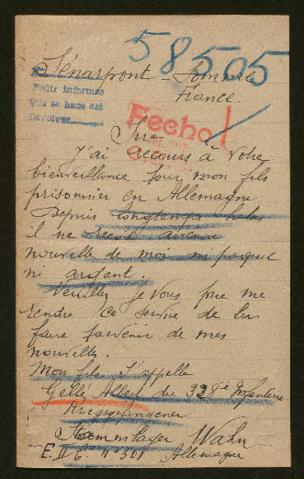 58505
Sénarpont - Somme
France
Pedir informes
que se hace así
Devolver
Fecho
Sire
J'ai recours à votre
bienveillance pour mon fils
prisonnier en Allemagne
Depuis longtemps
il ne reçoit aucune
nouvelle de moi ni paquet
ni argent.
Veuillez je vous prie me
rendre ce service de lui
faire parvenir de mes
nouvelles.
Mon fils s'appelle
Gellé Albert du 328e Infanterie
Kriegsgefangener
Stammlager Wahn
E. K. G. n° 501 Allemagne